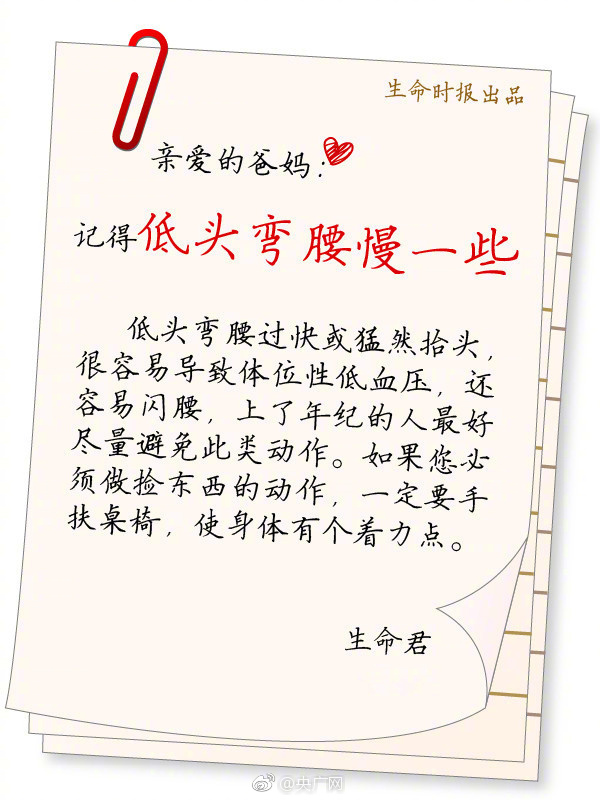 生命时报出品
亲爱的爸妈：
记得低头弯腰慢一些
低头弯腰过快或猛然抬头，
很容易导致体位性低血压，还
容易闪腰，上了年纪的人最好
尽量避免此类动作。如果您必
须做捡东西的动作，一定要手
扶桌椅，使身体有个着力点。
生命君
@央广网